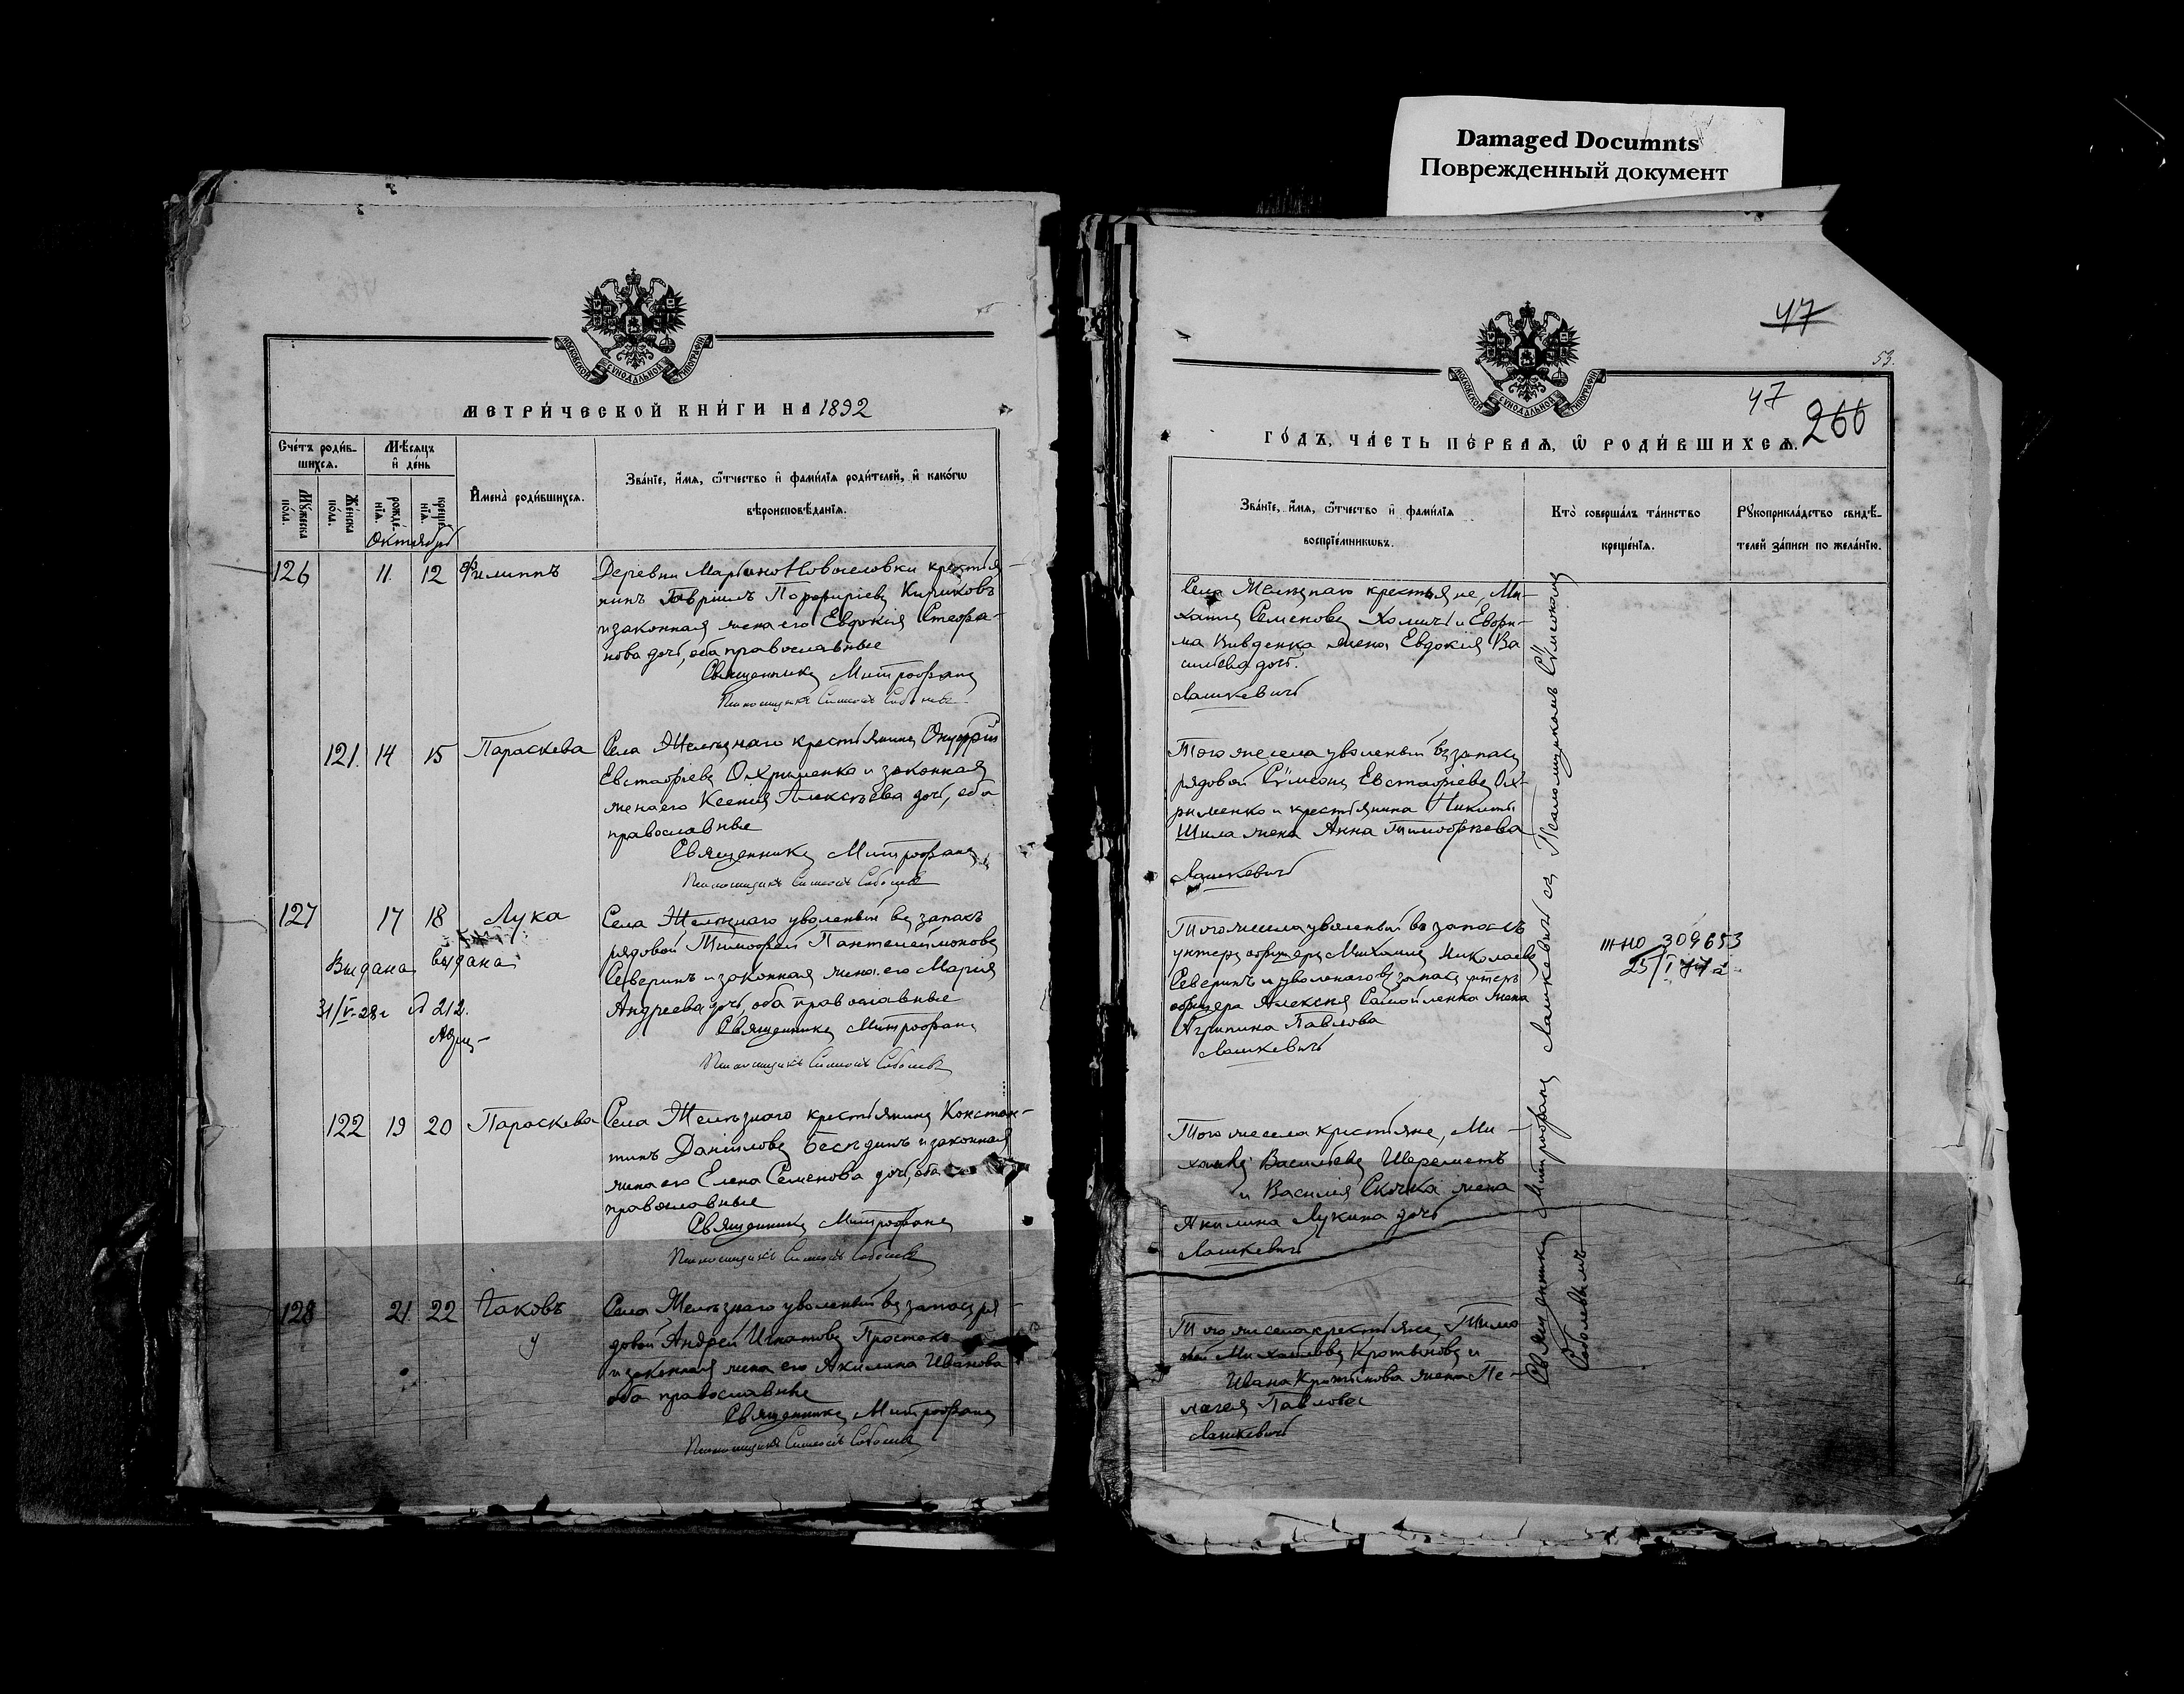 Damaged Documnts
Поврежденный документ
МОСКОВСКОЙ СѴНОДАЛЬНОЙ ТИПОГРАФІИ
МЕТРИ́ЧЕСКОЙ КНИ́ГИ НА 1892
Сче́тъ роди́в-
шихсѧ.
Мѣ́сѧцъ
и҆ де́нь
И҆мена̀ роди́вшихсѧ.
Зва́нїе, и҆́мѧ, ѻ҆́тчество и҆ фами́лїѧ роди́телей, и҆ како́гѡ
вѣроисповѣ́данїѧ.
Мꙋ́жеска
по́ла.
Же́нска
по́ла.
рожде́-
нїѧ.
креще́-
нїѧ.
Октябрь
126 11 12 Филиппъ
Деревни Мартыно Новоселовки крестья
нинъ Гавріилъ Порфиріевъ Кириковъ
и законная жена его Евдокія Стефа-
нова дочь, оба православные
Священникъ Митрофанъ
Псаломщикъ Симеонъ Соболевъ
121 14 15 Параскева
Села Желѣзнаго крестьянинъ Онуфрій
Евстафіевъ Охрименко и законная
жена его Ксенія Алексѣева дочь, оба
православные
Священникъ Митрофанъ
Псаломщикъ Симеонъ Соболевъ
127 17 18 Лука
Выдана выдана
31/V-28 г № 212.
Села Желѣзнаго уволеный въ запасъ
рядовой Тимофей Пантелеймоновъ
Северинъ и законная жена его Марія
Андреева дочь, оба православные
Священникъ Митрофанъ
Псаломщикъ Симеонъ Соболевъ
122 19 20 Параскева
Села Желѣзнаго крестьянинъ Констан-
тинъ Даніиловъ Бесѣдинъ и законная
жена его Елена Семенова дочь, оба
православные
Священникъ Митрофанъ
Псаломщикъ Симеонъ Соболевъ
128 21 22 Іаковъ
Села Желѣзнаго уволеный въ запасъ ря
довой Андрей Игнатовъ
и законная жена его Акилина Иванова
оба православные
Священникъ Митрофанъ
Псаломщикъ Симеонъ Соболевъ
47
53.
47
260
МОСКОВСКОЙ СѴНОДАЛЬНОЙ ТИПОГРАФІИ
ГО́ДЪ, ЧА́СТЬ ПЕ́РВАѦ, Ѡ҆ РОДИ́ВШИХСѦ.
Зва́нїе, и҆́мѧ, ѻ҆́тчество и҆ фами́лїѧ
воспрїе́мникѡвъ.
Кто̀ соверша́лъ та́инство
креще́нїѧ.
Рꙋкоприкла́дство свидѣ́-
телей за́писи по жела́нїю.
Села Желѣзнаго крестьяне, Ми-
хаилъ Семеновъ Хомичъ и Евфи-
ма Вивденка жена Евдокія Ва
сильева дочь.
Лашкевичъ
Того же села уволеный въ запасъ
рядовой Сѵмеонъ Евстафіевъ Ох-
рименко и крестьянина Никиты
Шила жена Анна Тимофѣева
Лашкевичъ
Того же села уволеный въ запасъ
унтеръ офицеръ Михаилъ Николаевъ
Северинъ и уволенаго въ запасъ унтеръ
офицера Алексія Самойленка жена
Агрипина Павлова
Лашкевичъ
309653
Того же села крестьяне, Ми-
хаилъ Васильевъ Шереметъ
и Василія Скочка жена
Акилина Лукина дочь
Лашкевичъ
Того же села крестьяне, Тимо
фей Михайловъ Кротыновъ и
Ивана Кротынова жена Пе-
лагея Павлова
Лашкевичъ
Священникъ Митрофанъ Лашкевичъ съ Псаломщикомъ Сѵмеономъ
Соболевымъ